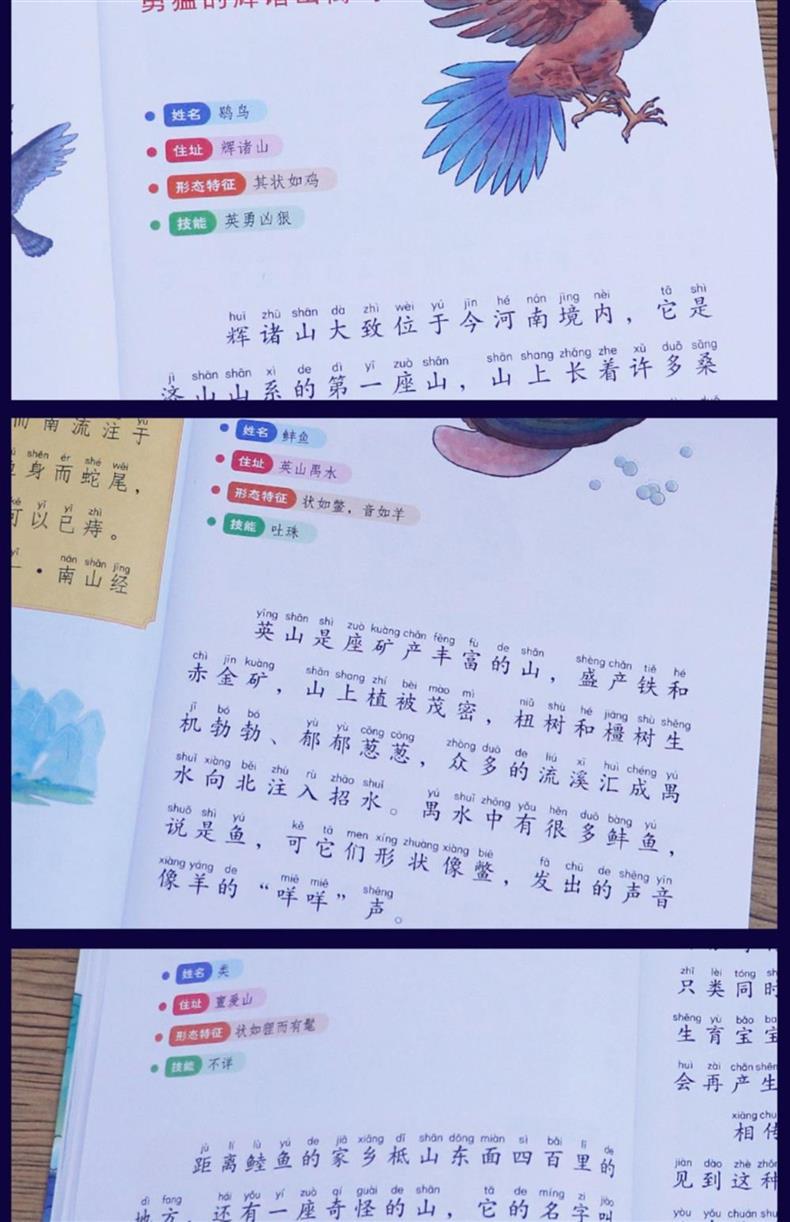 姓名 鹖鸟
住址 辉诸山
形态特征 其状如鸡
技能 英勇凶狠
huī zhū shān dà zhì wèi yú jīn hé nán jìng nèi tā shì
辉诸山大致位于今河南境内，它是
jǐ shān shān xì de dì yī zuò shān shān shang zhǎng zhe xǔ duō sāng
济山山系的第一座山，山上长着许多桑
而南流注于
shēn ér shé wěi
身而蛇尾，
kě yǐ yǐ zhì
可以已痔。
nán shān jīng
·南山经
姓名 鲜鱼
住址 英山禺水
形态特征 状如鳖，音如羊
技能 吐珠
yīng shān shì zuò kuàng chǎn fēng fù de shān shèng chǎn tiě hé
英山是座矿产丰富的山，盛产铁和
chì jīn kuàng shān shang zhí bèi mào mì niǔ shù hé jiāng shù shēng
赤金矿，山上植被茂密，杻树和橿树生
jī bó bó yù yù cōng cōng zhòng duō de liú xī huì chéng yú
机勃勃、郁郁葱葱，众多的流溪汇成禺
shuǐ xiàng běi zhù rù zhāo shuǐ yú shuǐ zhōng yǒu hěn duō bàng yú
水向北注入招水。禺水中有很多鲜鱼，
shuō shì yú kě tā men xíng zhuàng xiàng biē fā chū de shēng yīn
说是鱼，可它们形状像鳖，发出的声音
xiàng yáng de miē miē shēng
像羊的“咩咩”声。
姓名 类
住址 亶爰山
形态特征 状如狸而有髦
技能 不详
jù lí lù yú de jiā xiāng dǐ shān dōng miàn sì bǎi lǐ de
距离鯥鱼的家乡柢山东面四百里的
dì fang hái yǒu yí zuò qí guài de shān tā de míng zi jiào
地方，还有一座奇怪的山，它的名字叫
zhī lèi tóng
只类同时
shēng yù bǎo
生育宝宝
huì zài chǎn shēng
会再产生
xiāng chu
相传
jiàn dào zhè zhǒng
见到这种